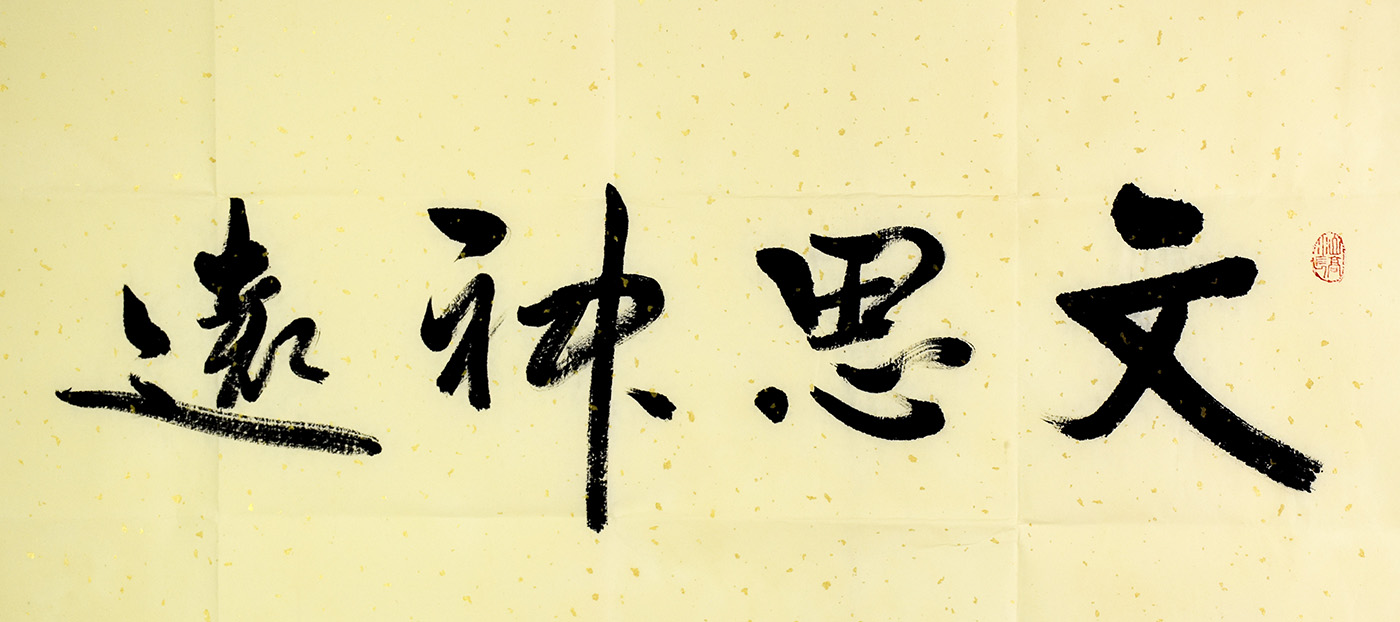 文思神遠